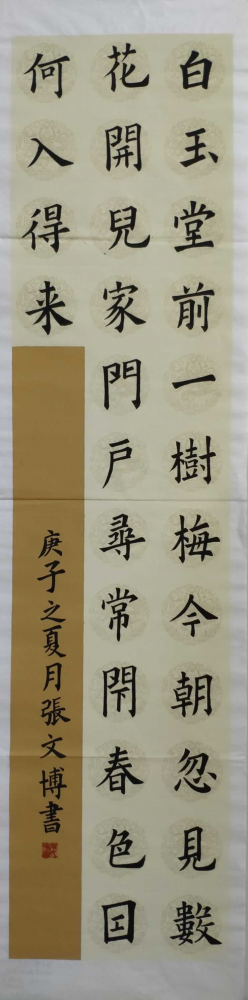 白玉堂前一樹梅今朝忽見數
花開兒家門戶尋常閇春色囙
何入得来
庚子之夏月張文博書